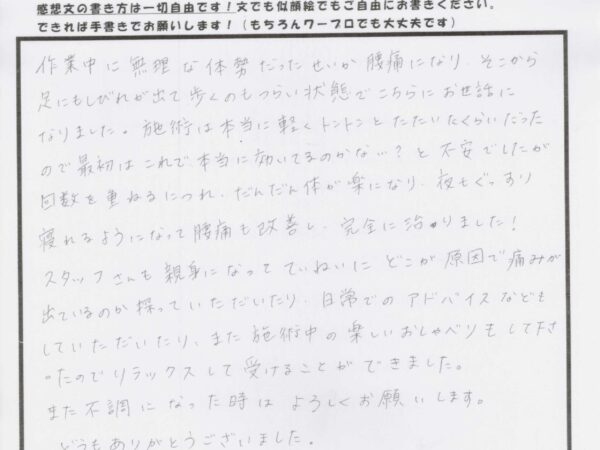 感想文の書き方は一切自由です！文でも似顔絵でもご自由にお書きください。
できれば手書きでお願いします！（もちろんワープロでも大丈夫です）
作業中に無理な体勢だったせいか腰痛になり、そこから
足にもしびれが出て歩くのもつらい状態でこちらにお世話に
なりました。施術は本当に軽くトントンとたたいたくらいだった
ので最初はこれで本当に効いてるのかな…？と不安でしたが
回数を重ねるにつれ、だんだん体が楽になり、夜もぐっすり
寝れるようになって腰痛も改善し、完全に治りました！
スタッフさんも親身になってていねいにどこが原因で痛みが
出ているのか探っていただいたり、日常でのアドバイスなども
していただいたり、また施術中の楽しいおしゃべりもして下さ
ったのでリラックスして受けることができました。
また不調になった時はよろしくお願いします。
どうもありがとうございました。